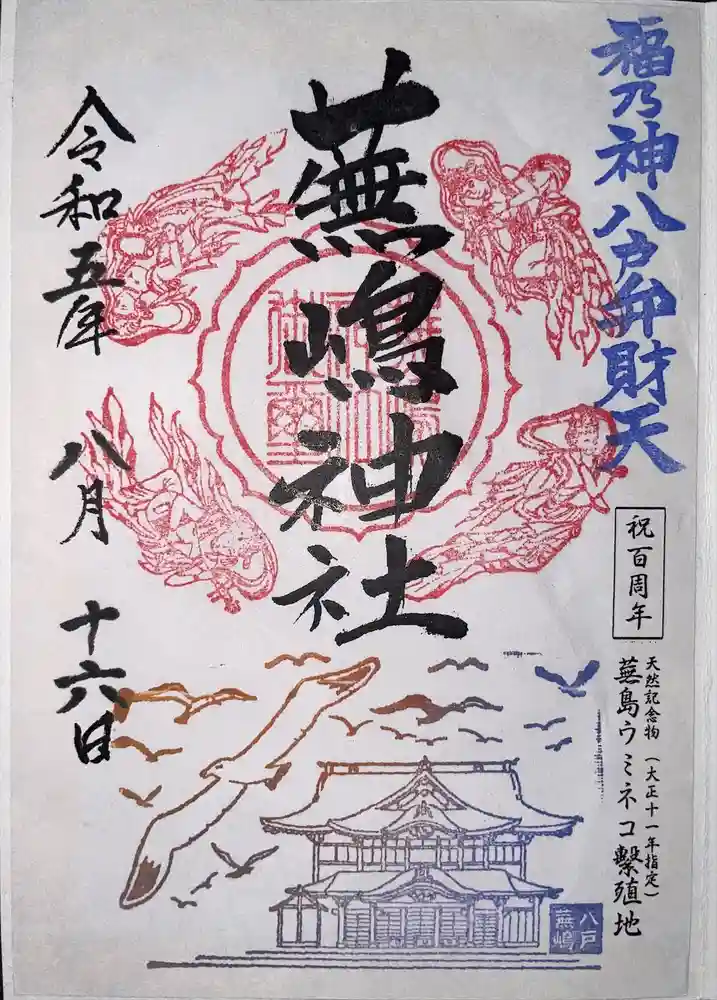 福乃神八戸弁財天
祝百周年
天然記念物(大正十一年指定)
蕪島ウミネコ繫殖地
蕪嶋神社
令和五年 八月 十六日
八戸
蕪嶋